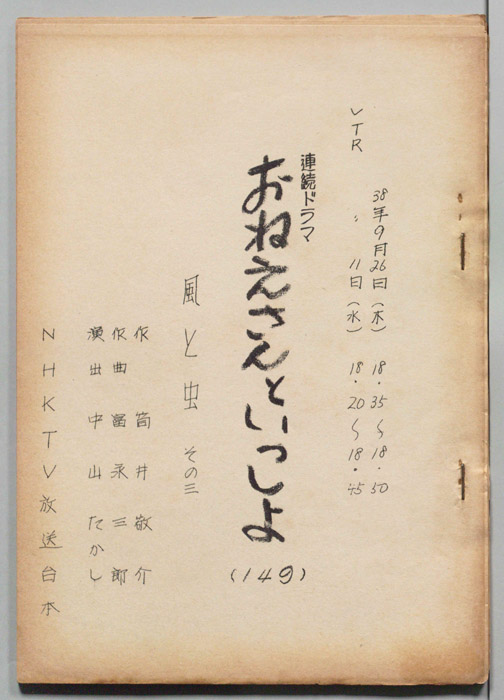 38年9月26日(木) 18.35～18.50
VTR 〃 11日(水) 18.20～18.45
連続ドラマ
おねえさんといっしょ
(149)
風と虫 その三
作 筒井敬介
作曲 冨永三郎
演出 中山たかし
NHKTV放送台本